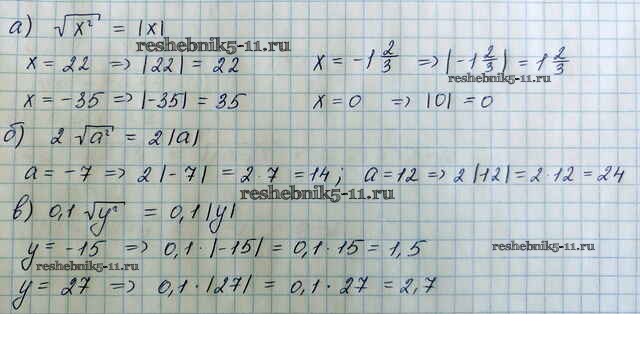 а) √x² = |x|
reshebnik5-11.ru
x = 22 => |22| = 22 x = -1 2/3 => |-1 2/3| = 1 2/3
reshebnik5-11.ru
x = -35 => |-35| = 35 x = 0 => |0| = 0
б) 2 √a² = 2|a|
a = -7 => 2|-7| = 2·7 = 14; a = 12 => 2|12| = 2·12 = 24
reshebnik5-11.ru
в) 0,1 √y² = 0,1|y|
y = -15 => 0,1·|-15| = 0,1·15 = 1,5
reshebnik5-11.ru
reshebnik5-11.ru
y = 27 => 0,1·|27| = 0,1·27 = 2,7